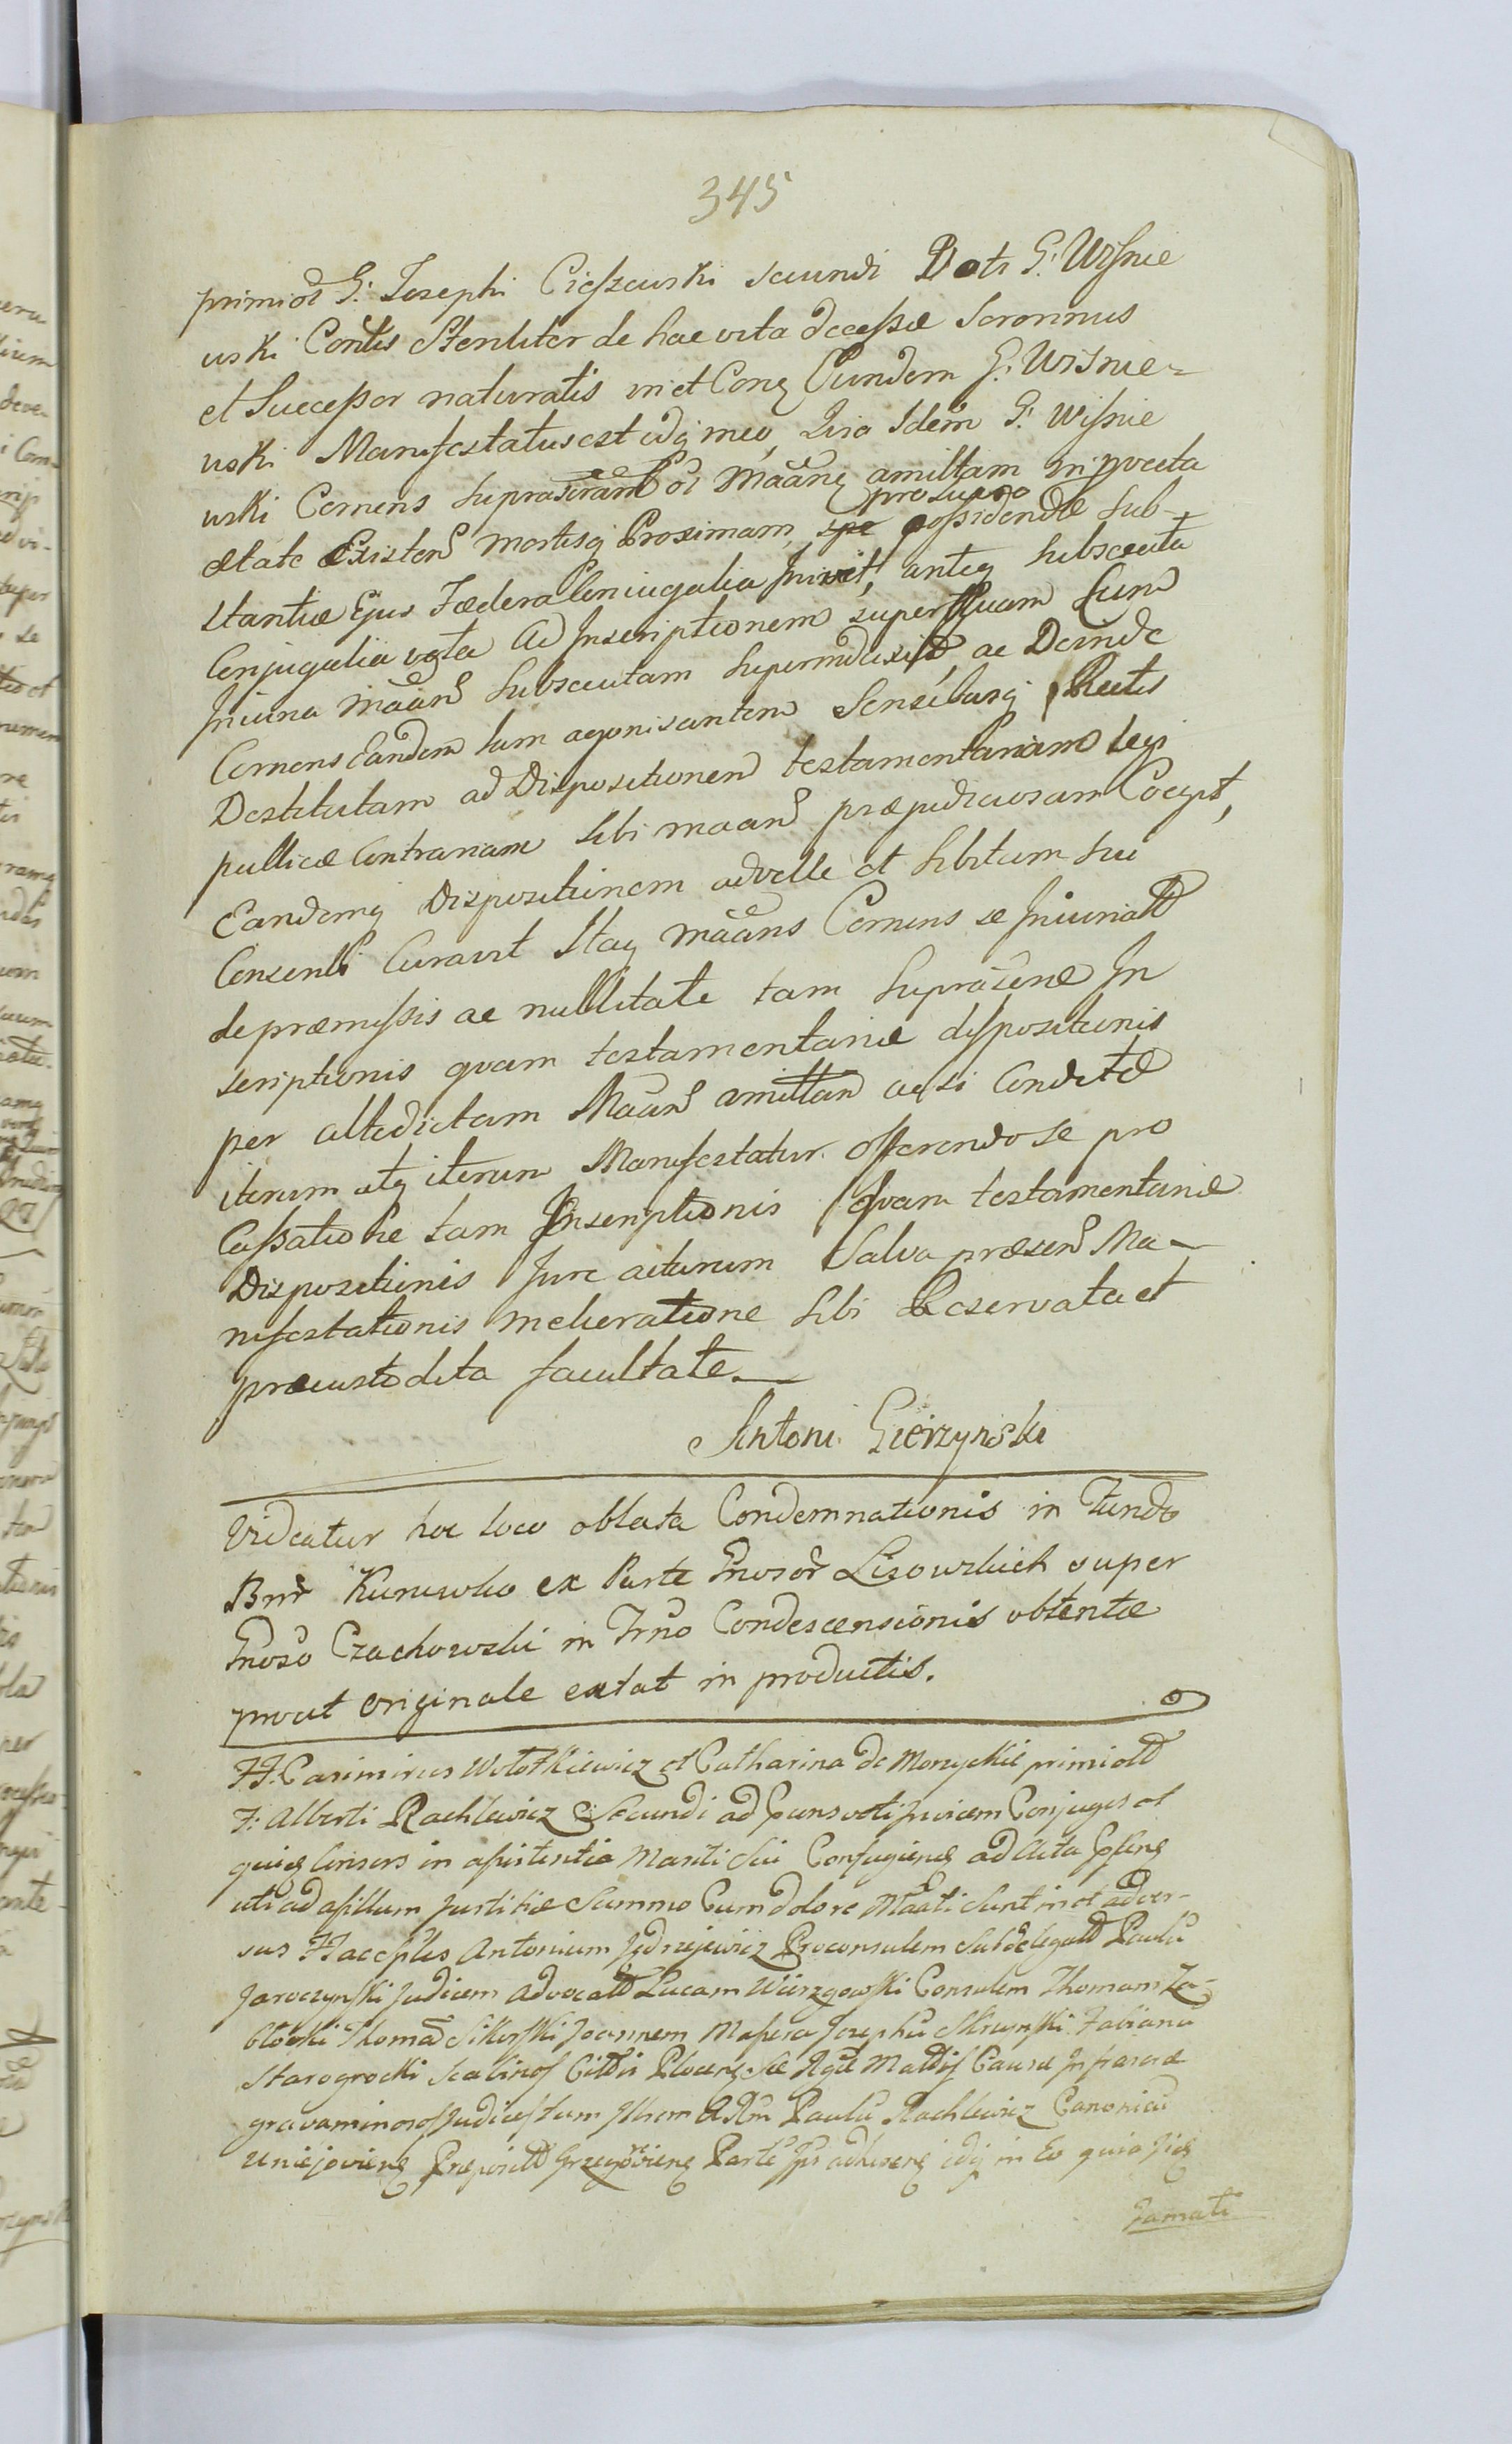 345
primiol G: Josephi Cieszewski secundi Voti G: Wisnie
wski Contis Steriliter de hac vita decessæ Sororinus
et Successor naturalis in et Cong Eundem G: Wisnie=
wski Manifestatus est idq; in eo, Quia Idem G: Wisnie
wski Comens supra Maanq amittam in provecta
ætate Existen mortisq Proximam, spe pro lucro possidendæ sub-
stantiæ Ejus Fædera Coniugalia Inivit, anteq subsecuta
Conjugalia vota ad Inscriptionem superfluam Cum
Iniuria Maan subsecutam supermduxit, ac Deinde
Comens Eandem tum agonisantem Sensibusq Rectis
Destitutam ad Dispositionem testamentariam legi
publicæ Contrariam sibi maan præjudiciosam Coegit,
Eandemq Dispositionem ad velle et libitum sui
Consenti Curavit Itaq Maans Comens se Iniuriatt
de præmissis ac nullitate tam Suprascrip In
scriptionis quam testamentariæ dispositionis
per altedictam Maan amittam acsi Conditæ
iterum atq iterum Manifestatur offerendo se pro
Cassatione tam Inscriptionis quam testamentariæ
Dispositionis Jure acturum Salva præsen Ma-
nifestationis melioratione sibi Reservata et
præcustodita facultate.
Antoni Gierzynski
Videatur hoc loco oblata Condemnationis in Fundo
Bnr Kurowko ex Parte Gnosor Lisowskich super
Gnoso Czachowski in Trno Condescensionis obtentæ
prout originale extat in productis.
FF: Casimirus Wolotkiewicz et Catharina de Morzyckie primiolt
F: Alberti Rachlewicz Secundi ad præns voti Invicem Conjuges et
quiq Consors in assistentia Mariti sui Confugienq ad Acta Ipsenq
uti ad asillum Justitiæ Summo Cum dolore Maati sunt in et adver-
sus FF acceptes Antonium Jędrzejewicz Proconsulem Subdelegatt Paulu
Jaroczynski Judicem Advocatt Lucam Wierzgowski Consulem Thomam Za-
błocki Thomā Sikorski Joannem Masera Josephū Skrunski Fabianu
Starogrocki Scabinos Cittis Plocenq Sæ Rgiæ Mattis Causæ Infrascræ
gravaminosos Judices tum Illrem Adm Paulū Rachlewicz Canonicū
Uniejovienq Præpositt Grzegorzienq Parte Ips adhærenq idq in Eo quia Iidq
Famati